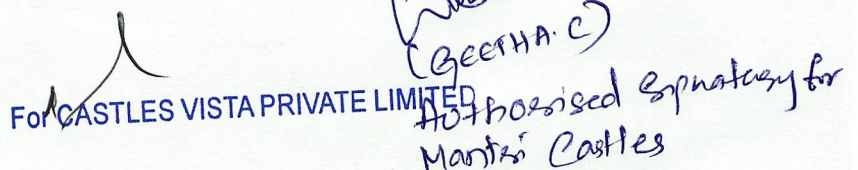 (GEETHA. C)
For CASTLES VISTA PRIVATE LIMITED
Authorised Signatory for
Mantri Castles